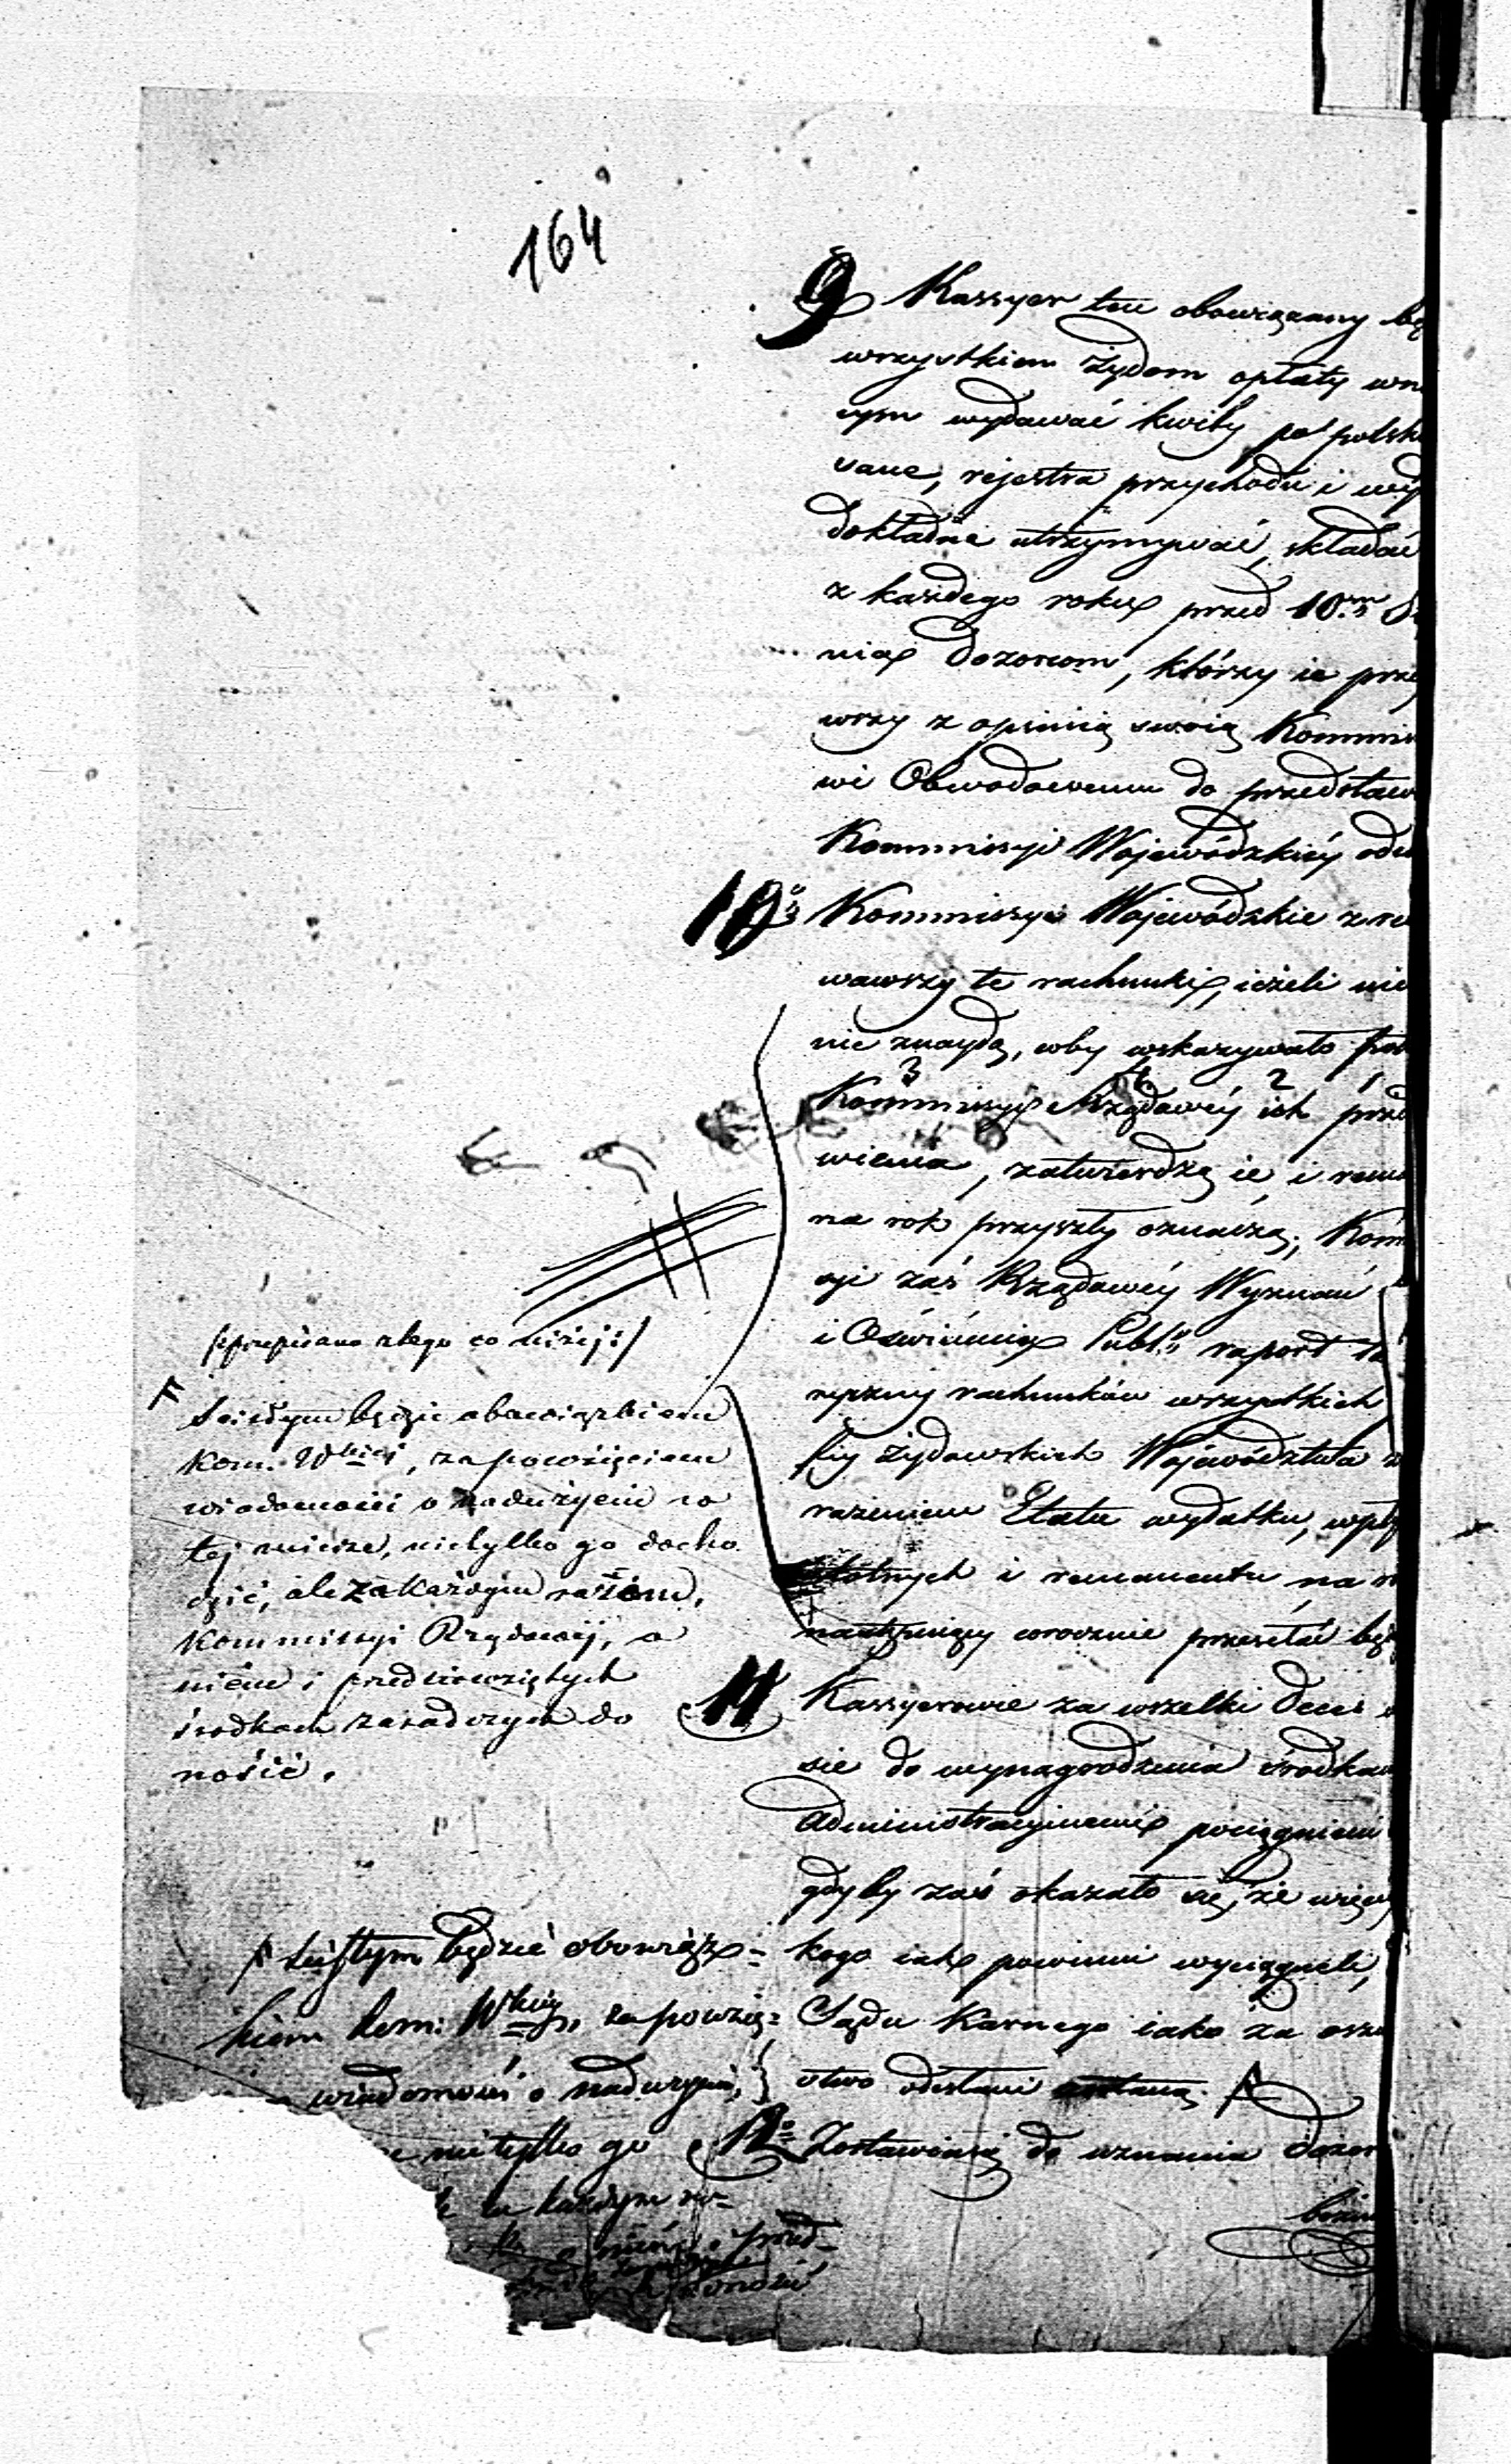 164
9 Kassyer ten obowiązany bę
wszystkiem Żydom opłaty wn
cym wydawać kwity po polsk
vane, rejestra przychodu i wy
dokładnie utrzymywać, składać
z każdego roku przed 10.m S
nia Dozorcom, którzy ie prze
wrzy z opinią swoią Kommis
wi Obwodowemu do przedstaw
Kommissyi Wojewódzkiéy ode
10o Kommissye Wojewódzkie z re
wawszy te rachunki, ieżeli nic
nie znaydą, coby wskazywało pot
3 4 2 1
Kommissyi Rządowéy ich prze
wienia, zatwierdzą ie, i rema
na rok przyszły oznaczą; Kom
syi zaś Rządowéy Wyznań
i Oświecenia Publ. raport ta
ryczny rachunków wszystkich
żydowskich Województwa z
rażeniem Etatu wydatku, wpły
istotnych i remanentu na r
następuiący corocznie przesełać bę
11 Kassyerowie za wszelki Deces
się do wynagrodzenia środkam
administracyinemi pociągnieni
gdyby zaś okazało się, że więc
kogo iak powinni wyciągneli,
Sądu Karnego iako za oszu
stwo odesłani zostaną. F
12o Zostawia się do uznania dozor
/:przepisano z tego co niżej:/
F Ścisłym będzie obowiązkiem
Kom. Wkiej, za powzięciem
wiadomości o nadużyciu w
tej mierze, nietylko go docho
dzić, ale za każdym razem,
Kommissyi Rządowej, o
niem i przedsiewziętych
środkach zaradczych do
nosić.
F ścisłym będzie obowiąz=
kiem Kom: Wkiej, za powzię=
wiadomości o nadużyciu,
nie tylko go
za każdym ra=
o niem i przed=
donosić